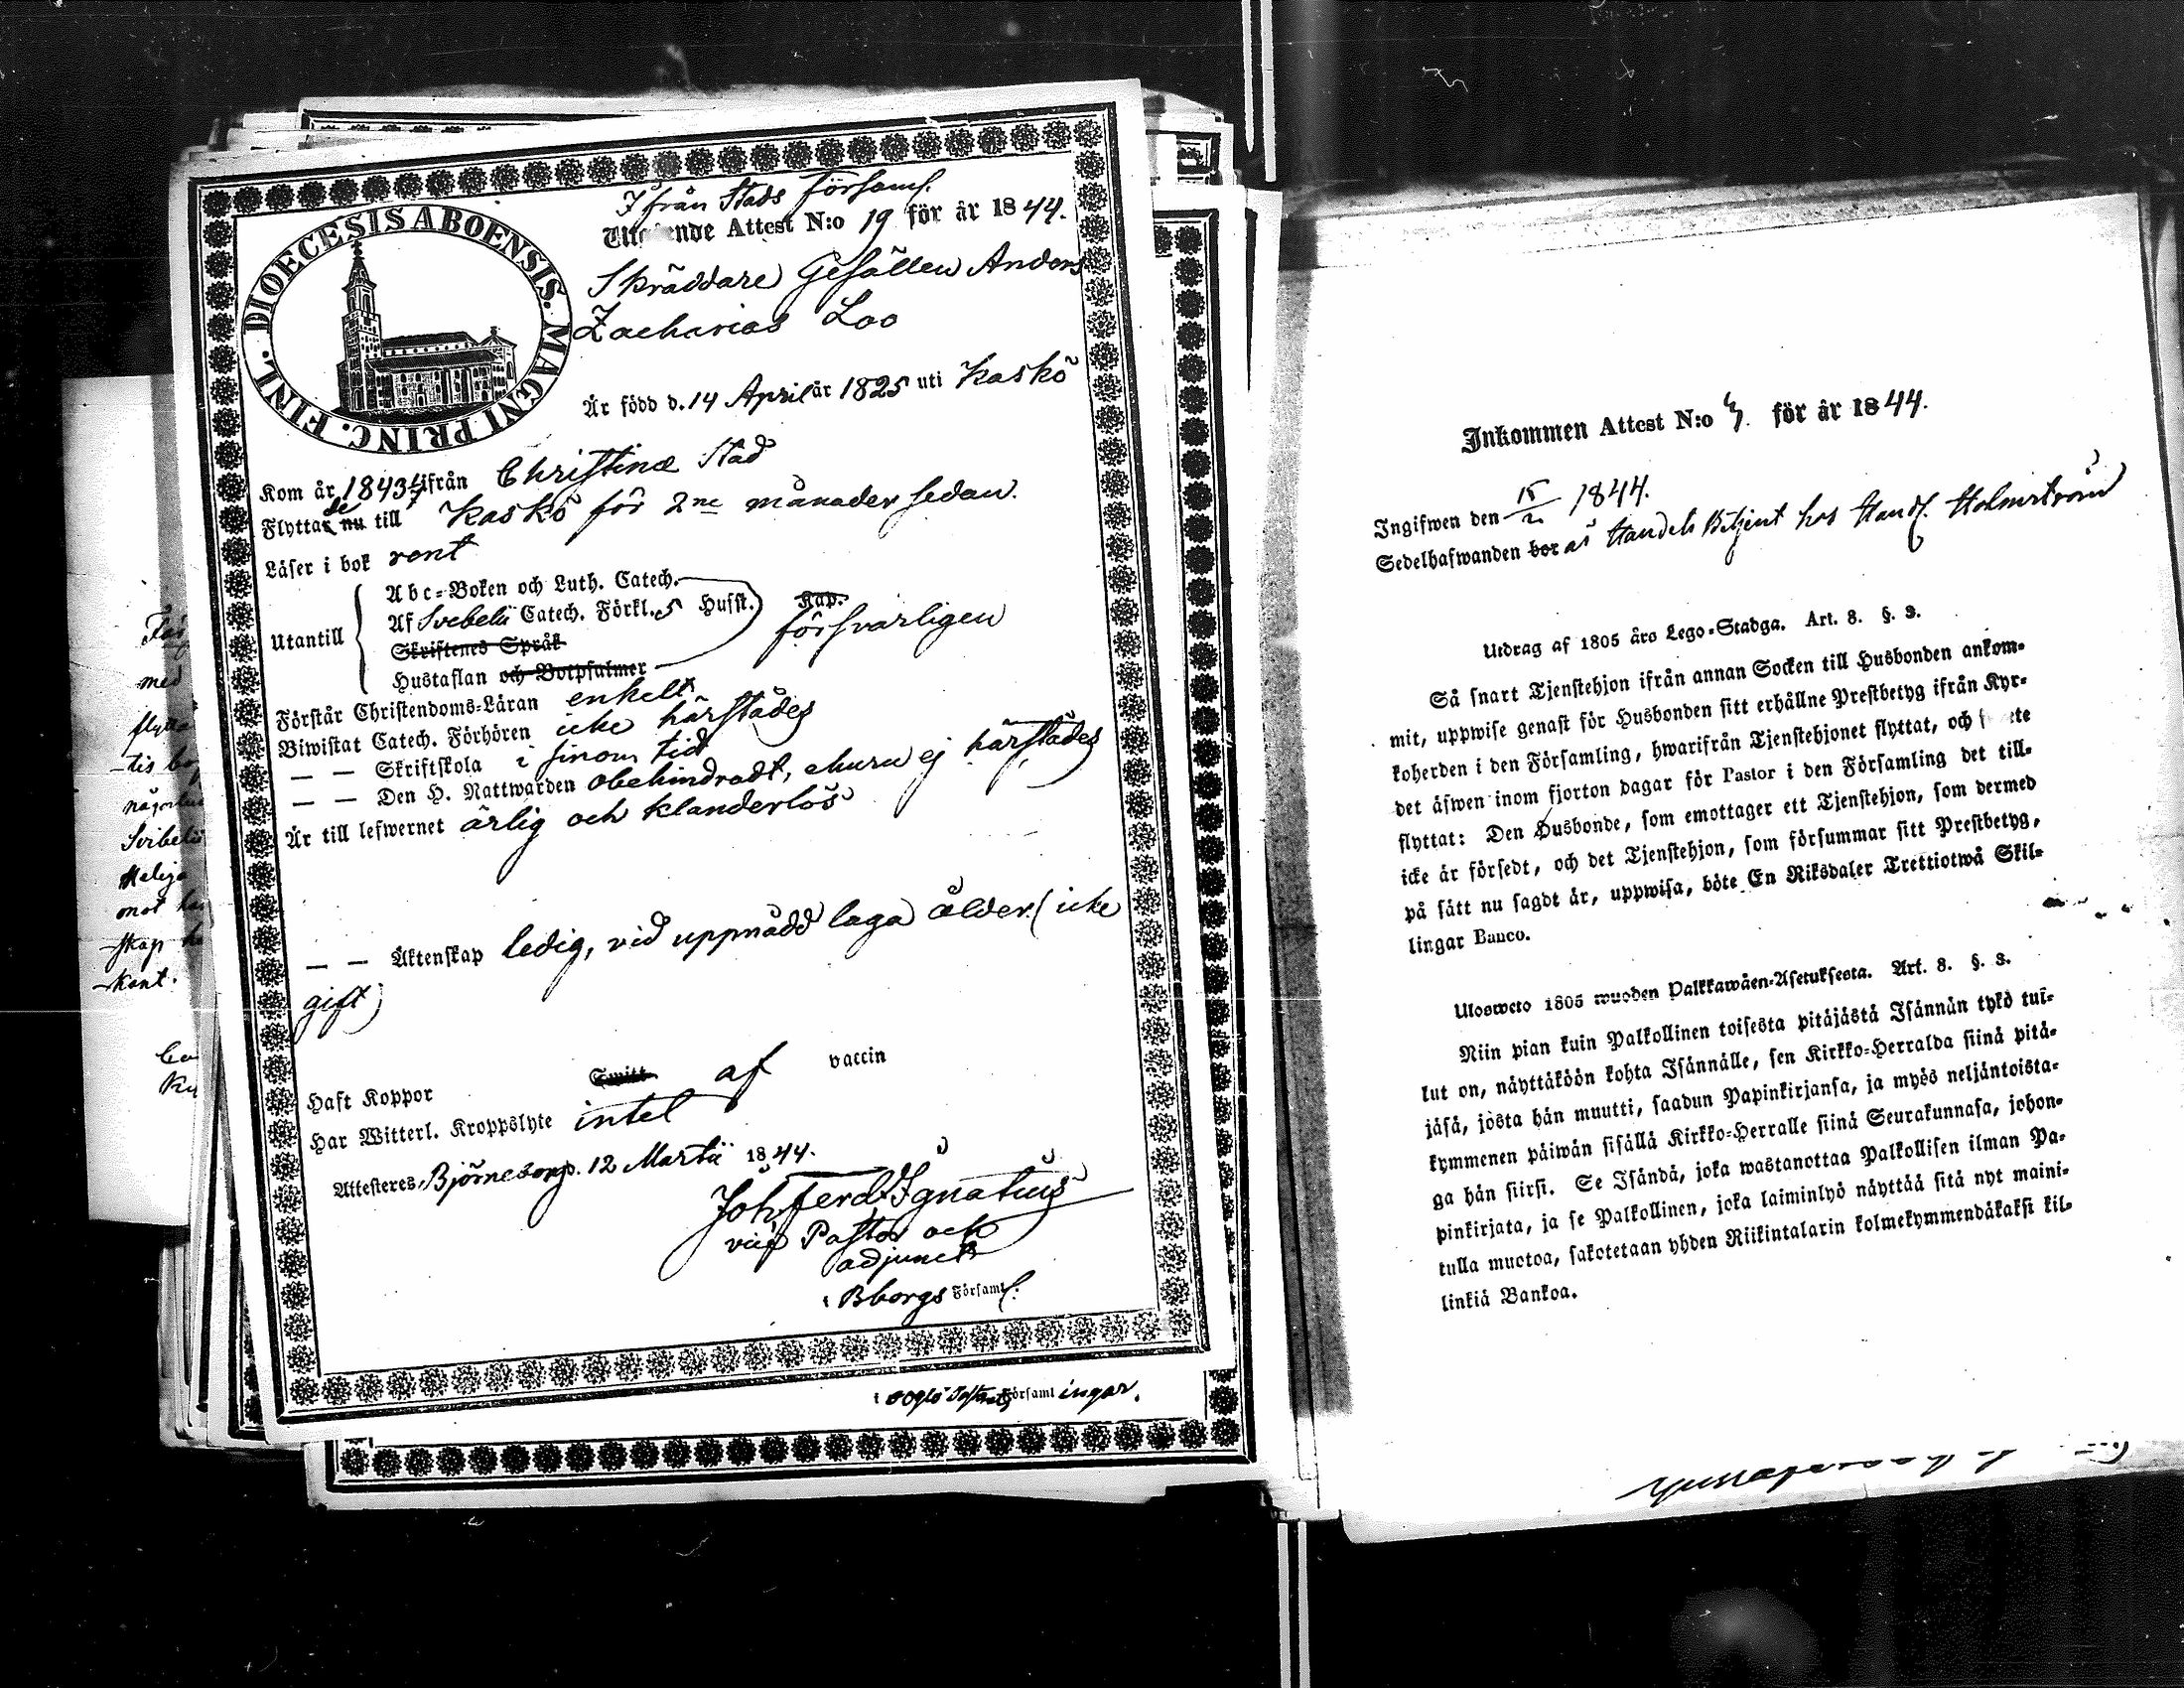 DIOECESIS ABOENSIS. MAGNI PRINC. FINL.
Ifrån Stads församl.
Utgående Attest N:o 19 för år 1844.
Skräddare Gesällen Anders
Zacharias Loo
Är född d. 14 April år 1825 uti Kaskö
Kom år 1843 ifrån Christinæ Stad
Flyttade nu till Kaskö för 2ne månader sedan.
Läser i bok rent
Utantill
Abc-Boken och Luth. Catech.
Af Svebelii Catech. Förkl. 5 Hufst. Kap.
försvarligen
Skriftenes Språk
Hustaflan och Botpsalmer
Förstår Christendoms-Läran enkelt
Biwistat Catech. Förhören icke härstädes
— — Skriftskola i sinom tid
— — Den H. Nattwarden obehindradt, ehuru ej härstädes
Är till lefwernet ärlig och klanderlös
— — Äktenskap ledig, vid uppnådd laga ålder (icke
gift)
Haft Koppor af vaccin
Har Witterl. Kroppslyte intet
Attesteres, Björneborg. 12 Martii 1844.
Joh Ferd Ignatius
vice Pastor och
adjunct
i Bborgs Församl.
i Församl ingar.
med
Helga
-skap
-kant.
Inkommen Attest N:o för år 1844.
Ingifwen den 15/2 1844.
Sedelhafwanden bor as Handels Betjent hos Handl. Holmström
Utdrag af 1805 års Lego-Stadga. Art. 8. §. 3.
Så snart Tjenstehjon ifrån annan Socken till Husbonden ankom-
mit, uppwise genast för Husbonden sitt erhållne Prestbetyg ifrån Kyr-
koherden i den Församling, hwarifrån Tjenstehjonet flyttat, och
det äfwen inom fjorton dagar för Pastor i den Församling det till-
flyttat: Den Husbonde, som emottager ett Tjenstehjon, som dermed
icke är försedt, och det Tjenstehjon, som försummar sitt Prestbetyg,
på sätt nu sagdt är, uppwisa, böte En Riksdaler Trettiotwå Skil-
lingar Banco.
Ulosweto 1805 wuoden Palkkawäen-Asetuksesta. Art. 8. §. 3.
Niin pian kuin Palkollinen toisesta pitäjästä Isännän tykö tul-
lut on, näyttäköön kohta Isännälle, sen Kirkko-Herralda siinä pitä-
jäsä, josta hän muutti, saadun Papinkirjansa, ja myös neljäntoista-
kymmenen päiwän sisällä Kirkko-Herralle siinä Seurakunnasa, johon-
ga hän siirsi. Se Isändä, joka wastanottaa Palkollisen ilman Pa-
pinkirjata, ja se Palkollinen, joka laiminlyö näyttää sitä nyt maini-
tulla muotoa, sakotetaan yhden Riikintalarin kolmekymmendäkaksi kil-
linkiä Bankoa.